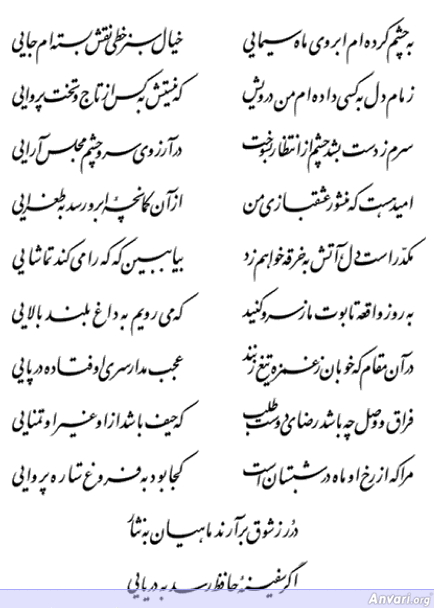 به چشم کرده‌ام ابروی ماه سیمایی خیال سبز خطی نقش بسته‌ام جایی
زمام دل به کسی داده‌ام من درویش که نیستش به کس از تاج و تخت پروایی
سرم ز دست بشد چشم از انتظار بسوخت در آرزوی سر و چشم مجلس آرایی
امید هست که منشور عشقبازی من از آن کمانچهٔ ابرو رسد به طغرایی
مکدر است دل آتش به خرقه خواهم زد بیا ببین که که را می‌کند تماشایی
به روز واقعه تابوت ما ز سرو کنید که می‌رویم به داغ بلند بالایی
در آن مقام که خوبان ز غمزه تیغ زنند عجب مدار سری اوفتاده در پایی
فراق و وصل چه باشد رضای دوست طلب که حیف باشد از او غیر او تمنایی
مرا که از رخ او ماه در شبستان است کجا بود به فروغ ستاره پروایی
درر ز شوق برآرند ماهیان به نثار
اگر سفینهٔ حافظ رسد به دریایی
Anvari.org